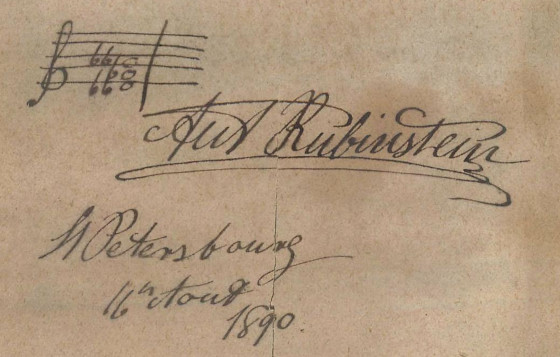 Ant Rubinstein
St Petersbourg
16n Aout
1890.